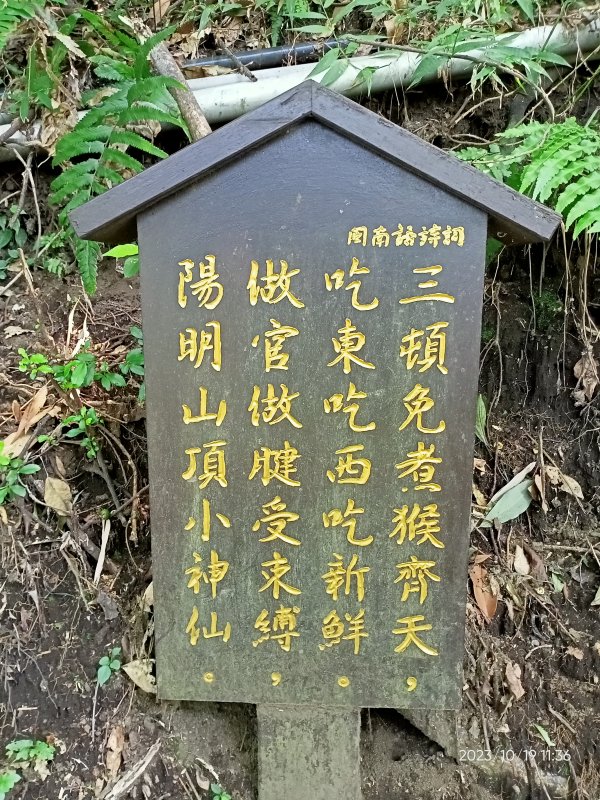 閩南語詩詞
三頓免煮猴齊天，
吃東吃西吃新鮮。
做官做腱受束縛，
陽明山頂小神仙。
2023/10/19 11:36